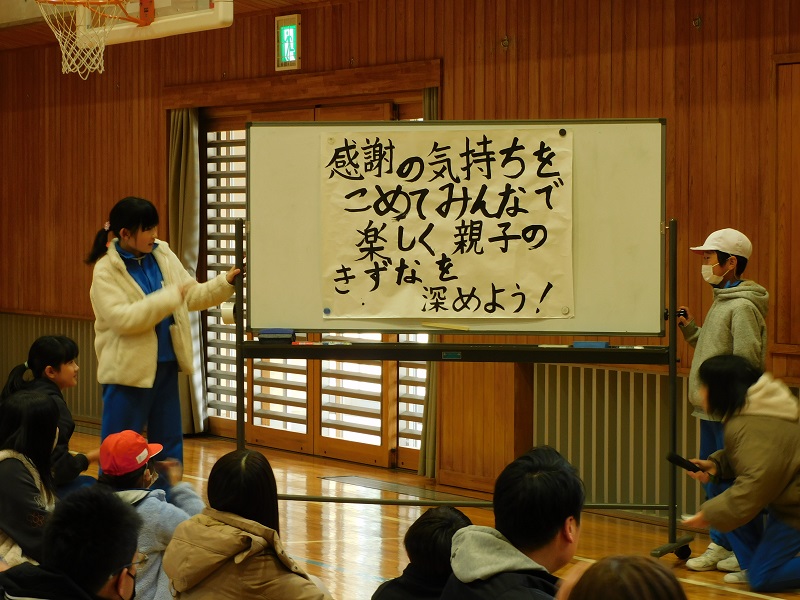 感謝の気持ちを
こめてみんなで
楽しく親子の
きずなを
深めよう！